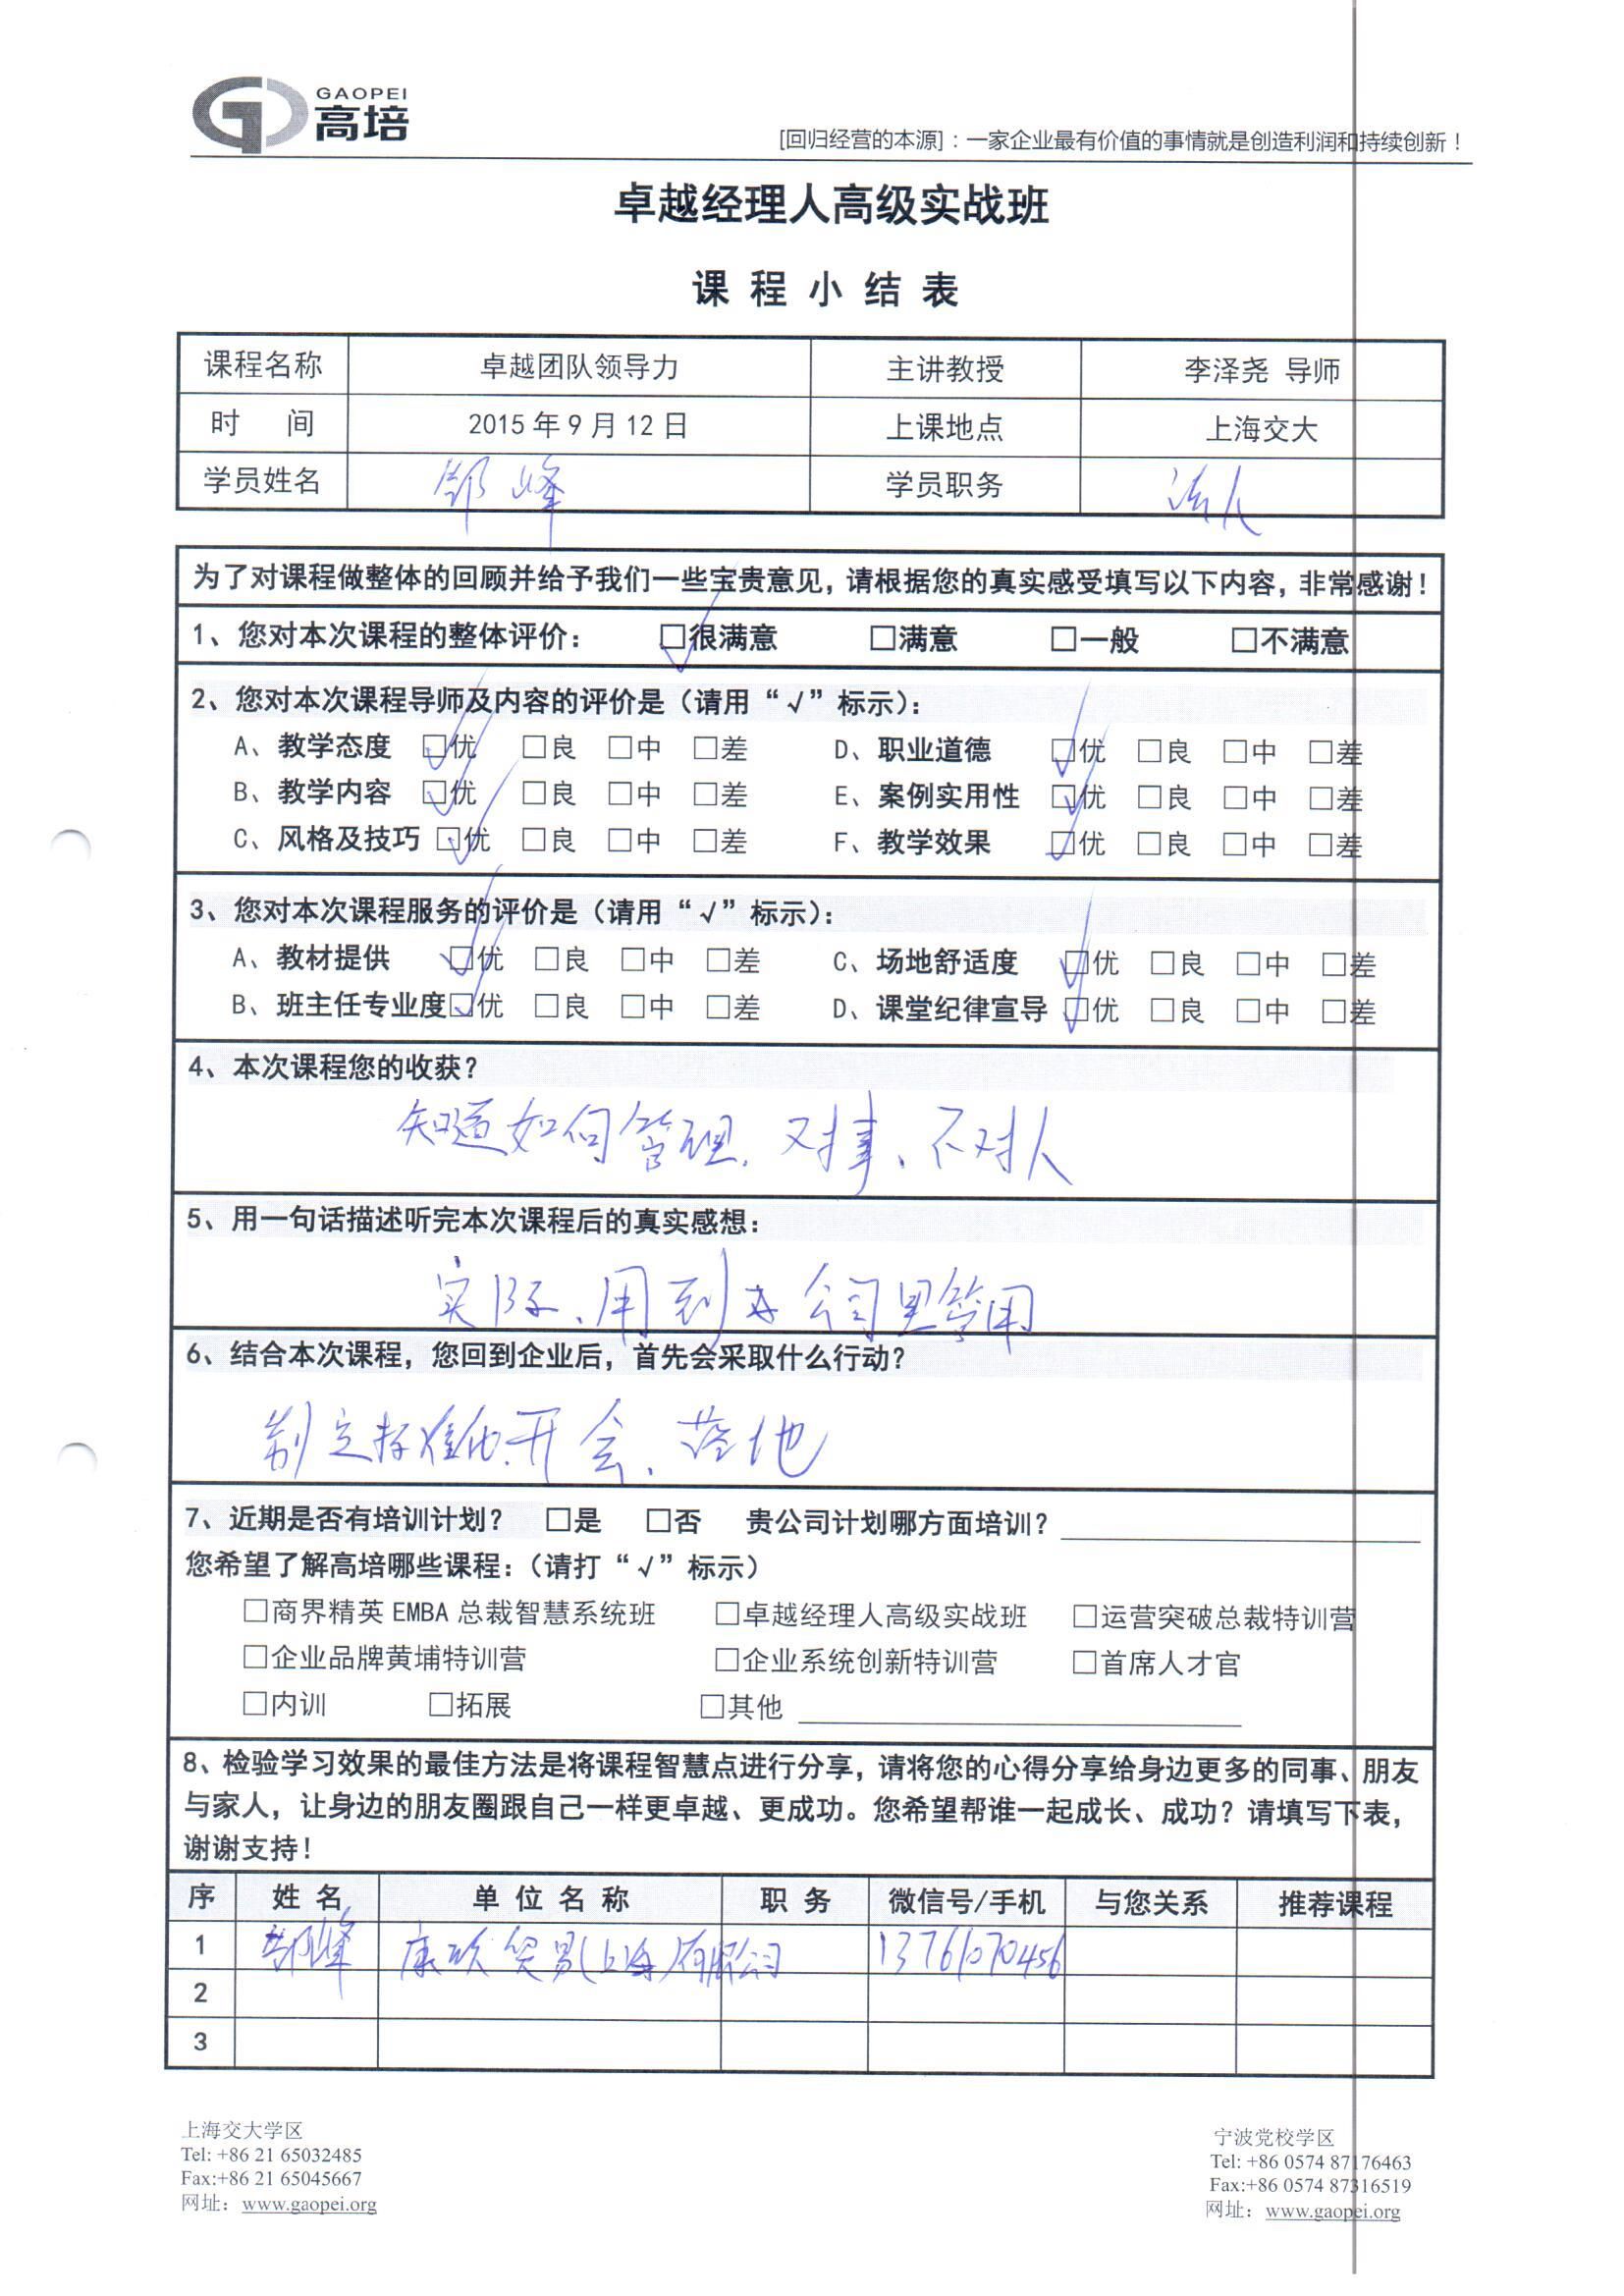 GAOPEI
高培
[回归经营的本源]：一家企业最有价值的事情就是创造利润和持续创新！
卓越经理人高级实战班
课 程 小 结 表
课程名称 卓越团队领导力 主讲教授 李泽尧 导师
时 间 2015 年 9 月 12 日 上课地点 上海交大
学员姓名 峰 学员职务 法人
为了对课程做整体的回顾并给予我们一些宝贵意见，请根据您的真实感受填写以下内容，非常感谢！
1、您对本次课程的整体评价： ☑很满意 □满意 □一般 □不满意
2、您对本次课程导师及内容的评价是（请用“√”标示）：
A、教学态度 ☑优 □良 □中 □差 D、职业道德 ☑优 □良 □中 □差
B、教学内容 ☑优 □良 □中 □差 E、案例实用性 ☑优 □良 □中 □差
C、风格及技巧 ☑优 □良 □中 □差 F、教学效果 ☑优 □良 □中 □差
3、您对本次课程服务的评价是（请用“√”标示）：
A、教材提供 ☑优 □良 □中 □差 C、场地舒适度 ☑优 □良 □中 □差
B、班主任专业度 ☑优 □良 □中 □差 D、课堂纪律宣导 ☑优 □良 □中 □差
4、本次课程您的收获？
知道如何管理，对事、不对人
5、用一句话描述听完本次课程后的真实感想：
实际、用到 公司里管用
6、结合本次课程，您回到企业后，首先会采取什么行动？
制定标准化、开会、落地
7、近期是否有培训计划？ □是 □否 贵公司计划哪方面培训？
您希望了解高培哪些课程：（请打“√”标示）
□商界精英 EMBA 总裁智慧系统班 □卓越经理人高级实战班 □运营突破总裁特训营
□企业品牌黄埔特训营 □企业系统创新特训营 □首席人才官
□内训 □拓展 □其他
8、检验学习效果的最佳方法是将课程智慧点进行分享，请将您的心得分享给身边更多的同事、朋友
与家人，让身边的朋友圈跟自己一样更卓越、更成功。您希望帮谁一起成长、成功？请填写下表，
谢谢支持！
序 姓 名 单 位 名 称 职 务 微信号/手机 与您关系 推荐课程
1 峰 贸易(上海)有限公司 13761070456
2
3
上海交大学区
Tel: +86 21 65032485
Fax:+86 21 65045667
网址：www.gaopei.org
宁波党校学区
Tel: +86 0574 87176463
Fax:+86 0574 87316519
网址：www.gaopei.org